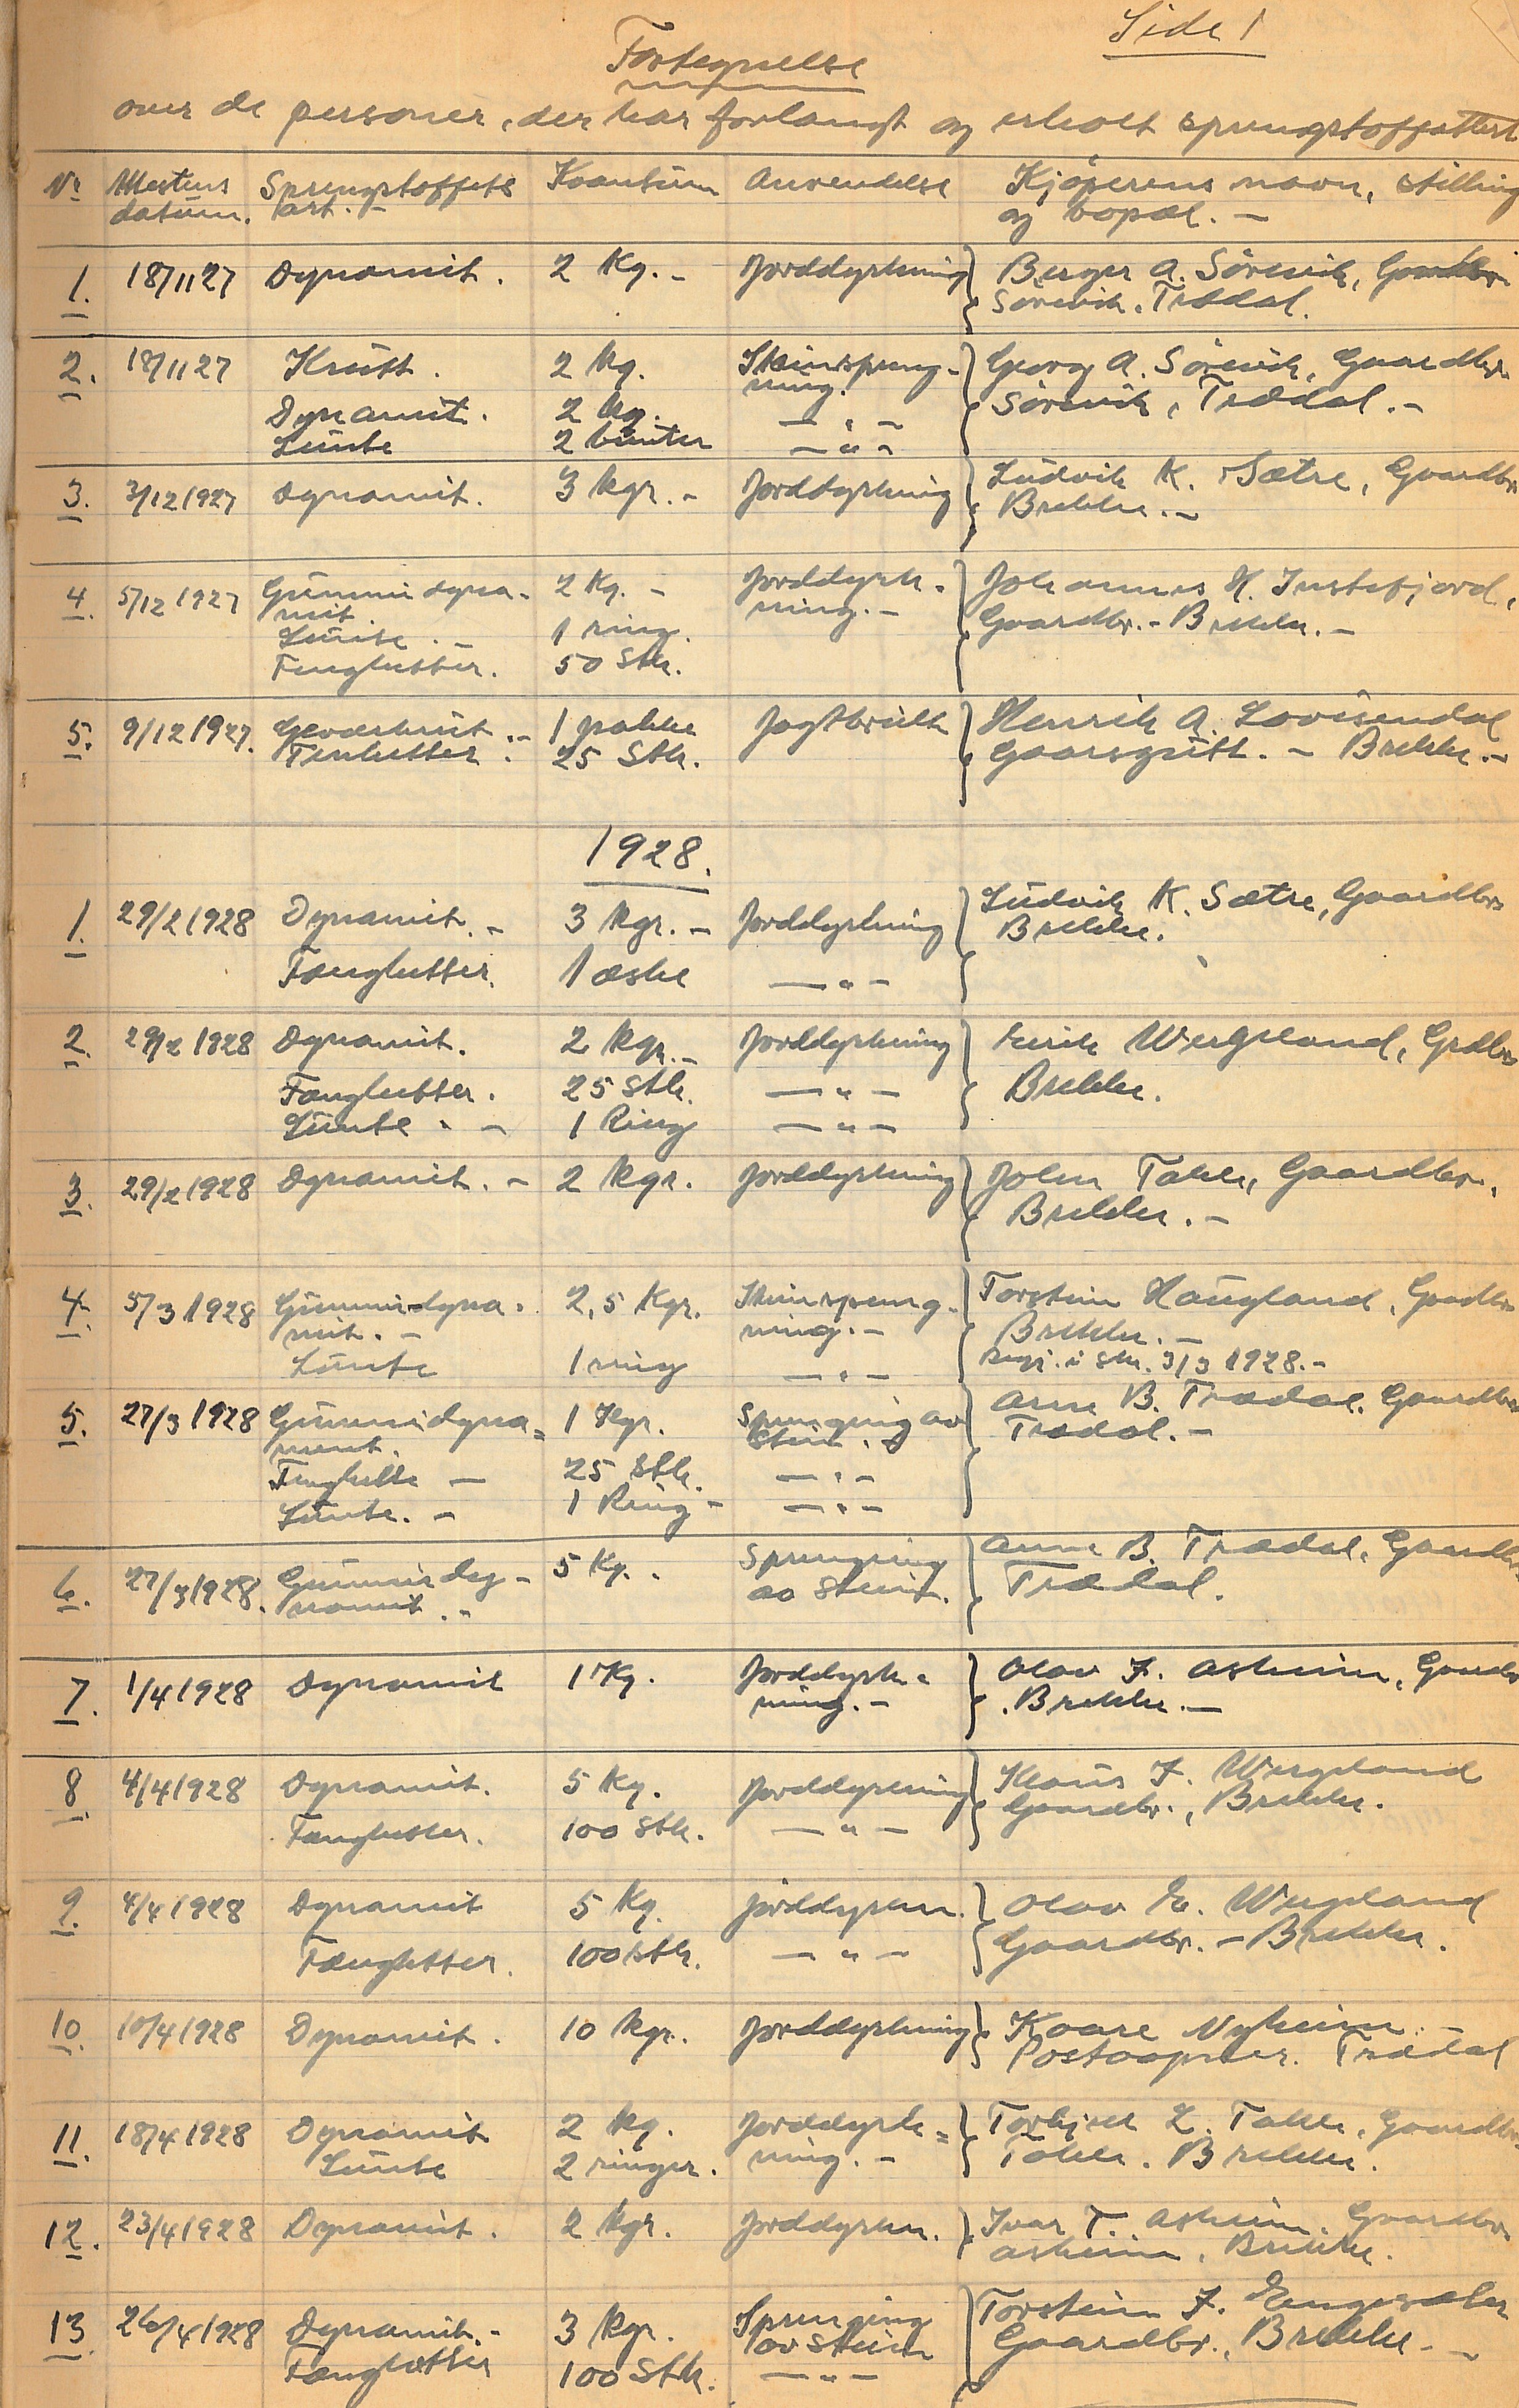 Side 1
Fortegnelse
over de personer, der har forlangt og erholt sprengstoffattest
No Attestens datum. Sprengstoffets art. - Kvantum Anvendelse Kjøperens navn, stilling og bopæl. -
1. 18/11 27 Dynamit. 2 Kg. - Jorddyrkning Berger A. Sörevik, Gaardbr.
Sörevik. Trædal.
2. 18/11 27 Krutt. 2 kg. Steinspreng- Georg A. Sörevik, Gaardbr.
ning. Sörevik, Trædal. -
Dynamit. 2 kg. - " -
Lunte 2 bunter - " -
3. 3/12 1927 Dynamit. 3 kgr. - Jorddyrkning Ludvik K. Sætre, Gaardbr.
Brekke. -
4. 5/12 1927 Gummidyna- 2 Kg. - Jorddyrk- Johannes H. Instefjord,
mit. ning. - Gaardbr. - Brekke. -
Lunte. - 1 ring.
Fenghetter. 50 Stk.
5. 9/12 1927. Geværkrut. - 1 pakke Jagtbruk Henrik A. Lovisendal
Fenhetter. 25 Stk. Gaarsgutt. - Brekke. -
1928.
1. 29/2 1928 Dynamit. - 3 kgr. - Jorddyrkning Ludvik K. Sætre, Gaardbr.
Brekke.
Fænghetter. 1 æske - " -
2. 29/2 1928 Dynamit. 2 kgr. - Jorddyrkning Eirik Wergeland, Grdbr.
Fænghetter. 25 Stk. - " - Brekke.
Lunte. - 1 Ring - " -
3. 29/2 1928 Dynamit. - 2 kgr. Jorddyrkning John Takle, Gaardbr.
Brekke. -
4. 5/3 1928 Gummidyna- 2,5 Kgr. Steinspreng- Torstein Haugland, Gaadbr.
mit. - ning. - Brekke. -
Lunte 1 ring - " - 3/3 1928. -
5. 27/3 1928 Gummidyna= 1 Kgr. Sprenging av Arne B. Trædal, Gaardbr.
mit. Stein. Trædal. -
Fenghette - 25 Stk. - " -
Lunte. - 1 Ring - - " -
6. 27/3 1928. Gummidy- 5 Kg. Sprenging Arne B. Trædal, Gaardbr.
namit. - av Stein. Trædal.
7. 1/4 1928 Dynamit 1 Kg. Jorddyrk- Olav F. Asheim, Gaardbr.
ning. - Brekke. -
8. 4/4 1928 Dynamit. 5 Kg. Jorddyrkning Klaus F. Wergeland
Gaardbr., Brekke.
Fænghetter. 100 Stk. - " -
9. 4/4 1928 Dynamit 5 Kg. Jorddyrkn. Olav E. Wergeland
Gaardbr. - Brekke.
Fænghetter. 100 Stk. - " -
10. 10/4 1928 Dynamit. 10 kgr. Jorddyrkning Kaare Nyheim. -
Postaapner. Trædal
11. 18/4 1928 Dynamit 2 kg. Jorddyrk= Torkjell L. Takle, Gaardbr.
Lunte 2 ringer. ning. - Takle. Brekke.
12. 23/4 1928 Dynamit. 2 kgr. Jorddyrkn. Ivar T. Asheim, Gaardbr.
Asheim, Brekke.
13. 26/4 1928 Dynamit. - 3 kgr. Sprenging Torstein F. Engesæter
av Stein Gaardbr., Brekke. -
Fænghetter 100 Stk. - " -